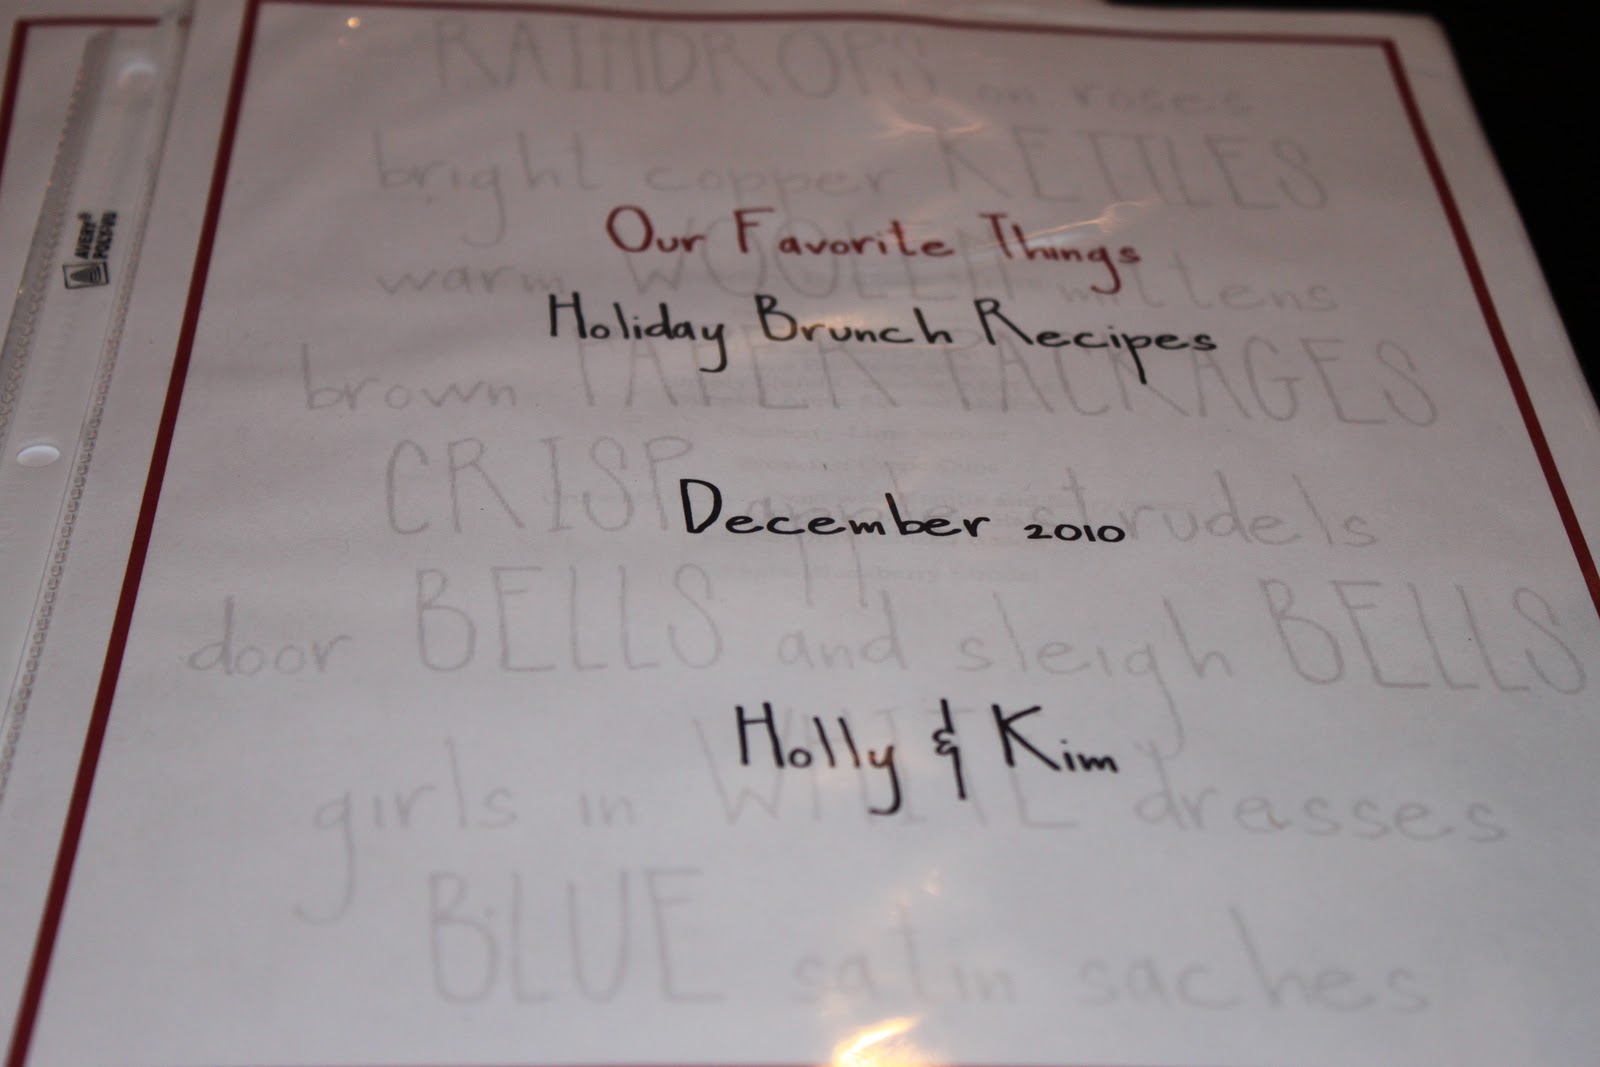 RAINDROPS on roses
bright copper KETTLES
Our Favorite Things
warm WOOLEN mittens
Holiday Brunch Recipes
brown PAPER PACKAGES
CRISP apple strudels
December 2010
door BELLS and sleigh BELLS
Holly & Kim
girls in WHITE dresses
BLUE satin saches
AVERY®
POLY-VU